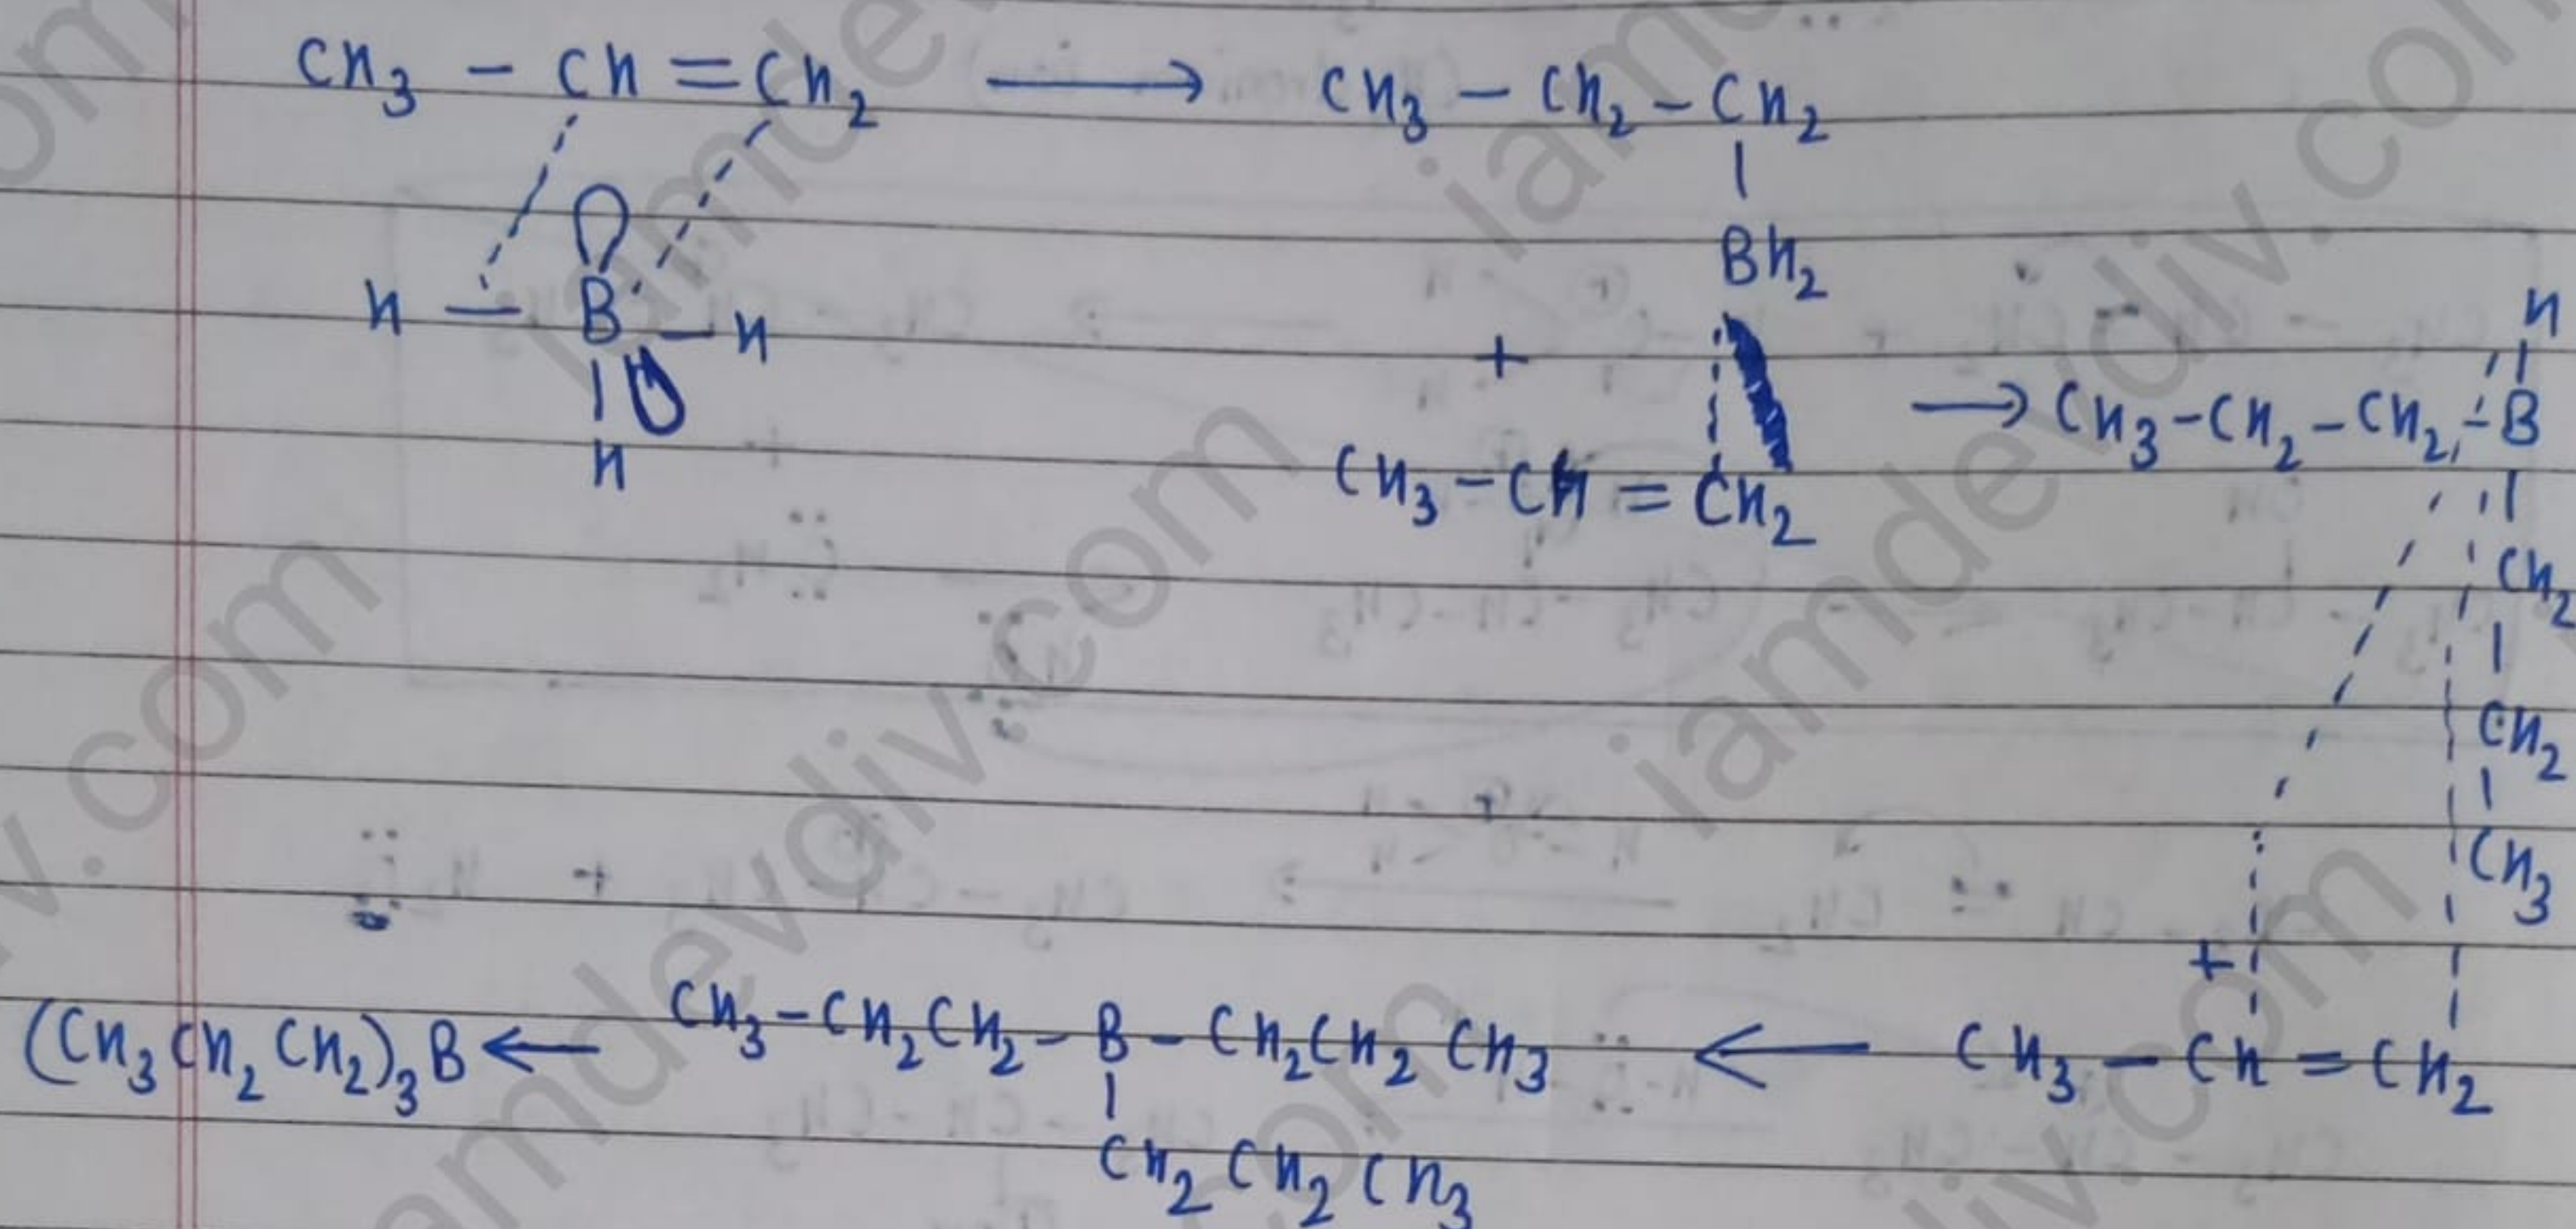 CH3 – CH = CH2 ⟶ CH3 – CH2 – CH2
|
BH2
H – B – H
|
H
+
CH3 – CH = CH2
→ CH3 – CH2 – CH2 – B
H
|
CH2
|
CH2
|
CH3
+
CH3 – CH = CH2
←
CH3 – CH2CH2 – B – CH2CH2CH3
|
CH2CH2CH3
(CH3CH2CH2)3B ←
iamdevdiv.com
iamdevdiv.com
iamdevdiv.com